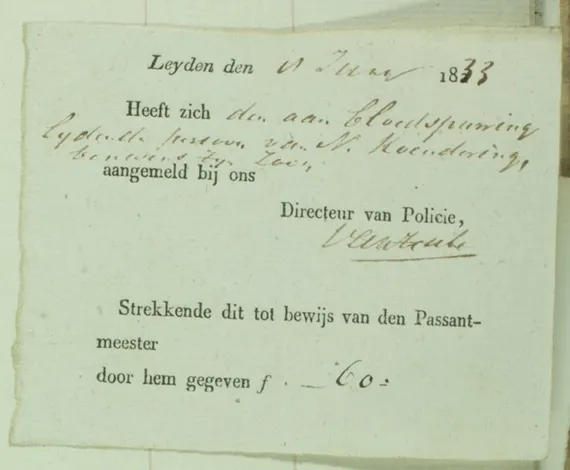 Leyden den Juny 1833
Heeft zich den aan bloedspuwing
lydende persoon van N. Koendering,
benevens zyn Zoon,
aangemeld bij ons
Directeur van Policie,
Strekkende dit tot bewijs van den Passant-
meester
door hem gegeven f . — 60 =